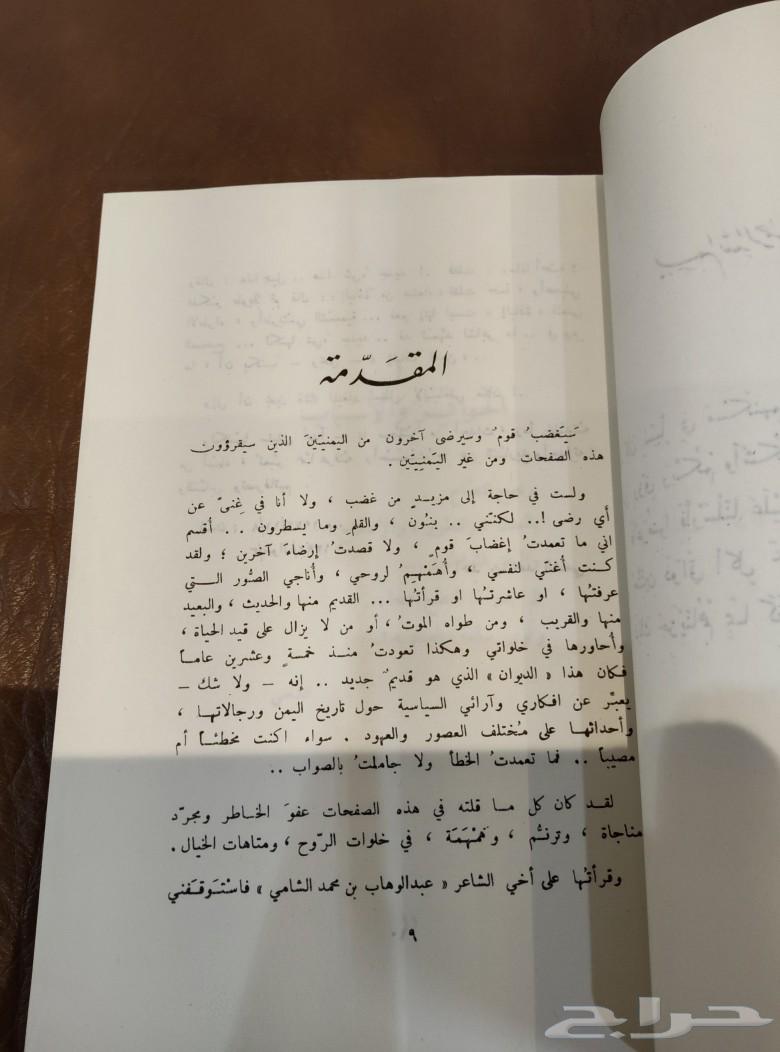 المقدّمة
سَيَغضبُ قومٌ وسيرضى آخرون من اليمنيّين الذين سيقرؤون
هذه الصفحات ومن غير اليَمنيّين .
ولست في حاجة إلى مزيدٍ من غضب ، ولا أنا في غِنىً عن
أي رضى !.. لكنّني .. بنُون ، والقلمِ وما يسطرون .. أقسم
اني ما تعمدتُ إغضابَ قومٍ ، ولا قصدتُ إرضاءَ آخرين ؛ ولقد
كنت أُغنّي لنفسي ، وأُهَمْهِمُ لروحي ، وأُناجي الصُّور التي
عرفتُها ، او عاشرتُها او قرأتُها ... القديم منها والحديث ، والبعيد
منها والقريب ، ومن طواه الموتُ ، أو من لا يزال على قيد الحياة ،
وأُحاورها في خلواتي وهكذا تعودتُ منذ خمسةٍ وعشرين عاماً
فكان هذا « الديوان » الذي هو قديمٌ جديد .. إنه – ولا شك –
يعبّر عن افكاري وآرائي السياسية حول تاريخ اليمن ورجالاتها ،
وأحداثها على مُختلف العصور والعهود . سواء اكنت مخطئاً أم
مصيباً .. فما تعمدتُ الخطأ ولا جاملتُ بالصواب ..
لقد كان كل ما قلته في هذه الصفحات عفوَ الخاطر ومجرّد
مناجاة ، وترنّم ، وهَمْهَمَة ، في خلوات الرّوح ، ومتاهات الخيال .
وقرأتُها على أخي الشاعر « عبدالوهاب بن محمد الشامي » فاسْتَوقَفني
٩
حراج